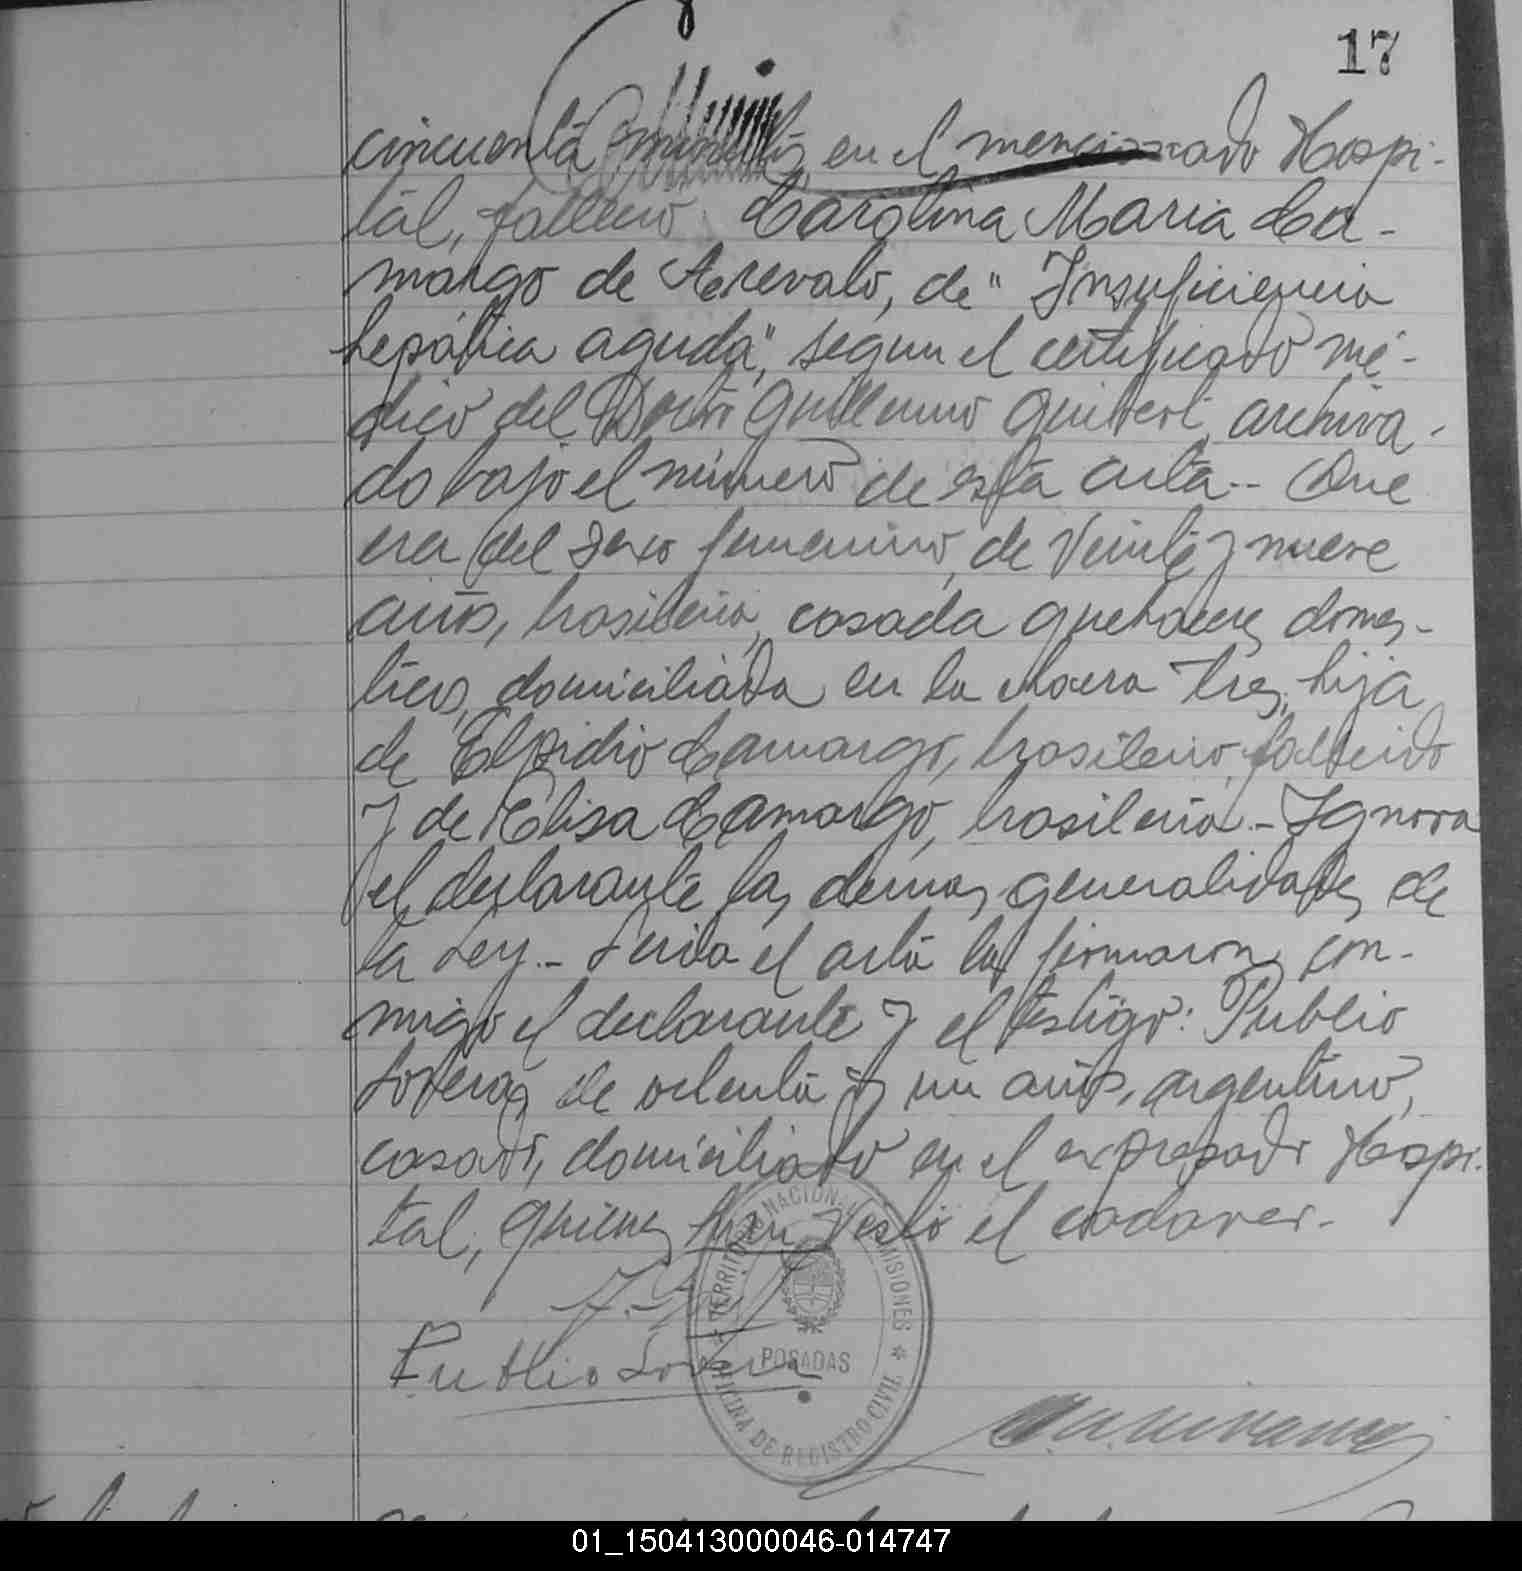 17
cincuenta minutos, en el mencionado Hospi-
tal, falleció: Carolina Maria Ca-
margo de Arevalo, de "Insuficiencia
hepática aguda", segun el certificado mé-
dico del Doctor Guillermo archiva-
do bajo el número de esta acta.- Que
era del sexo femenino, de veinte y nueve
años, brasileña, casada quehaceres domes-
ticos, domiciliada en la chacra tres, hija
de Elpidio Camargo, brasileño, fallecido
y de Elisa Camargo, brasileña.- Ignora
el declarante las demas generalidades de
la Ley.- Leida el acta la firmaron con-
migo el declarante y el testigo: Publio
Lovera, de ochenta y un años, argentino,
casado, domiciliado en el expresado Hospi-
tal, quienes han visto el cadaver.-
Publio Lovera
TERRITORIO NACIONAL DE MISIONES
POSADAS
OFICINA DE REGISTRO CIVIL
01_150413000046-014747